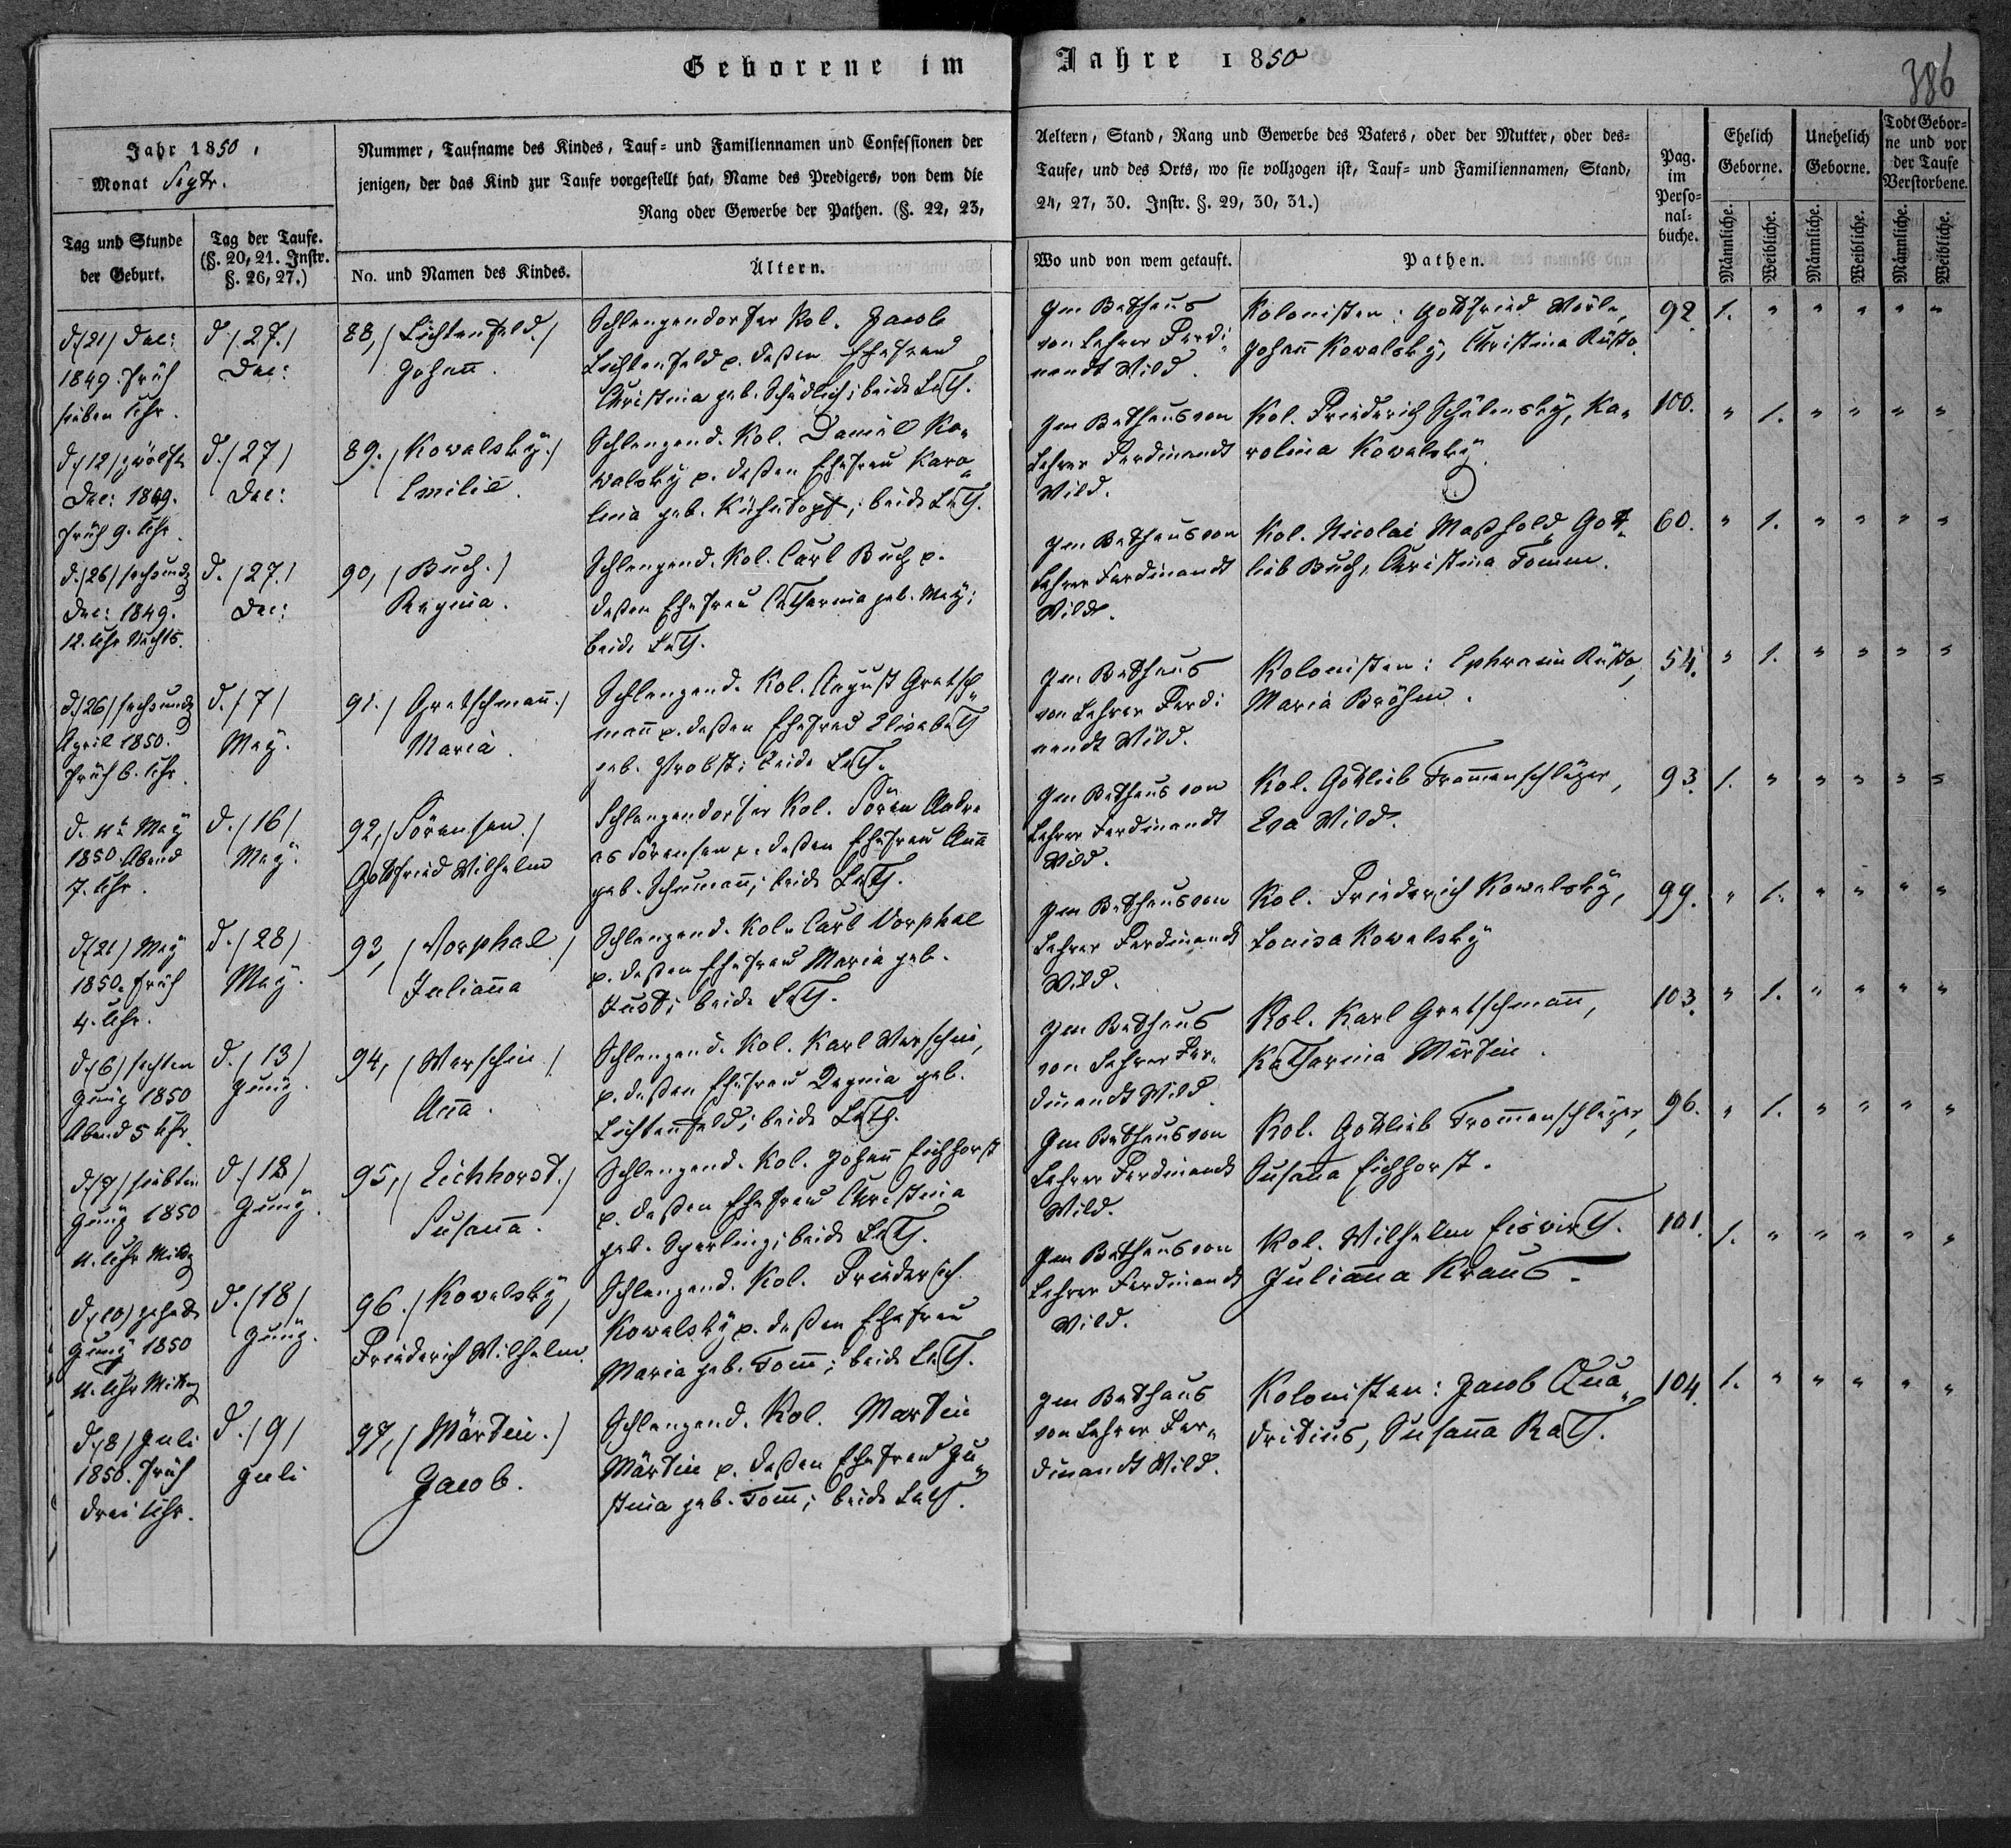 Geborene im Jahre 1850
386
Jahr 1850.
Monat Septr.
Nummer, Taufname des Kindes, Tauf- und Familiennamen und Confessionen der
jenigen, der das Kind zur Taufe vorgestellt hat, Name des Predigers, von dem die
Rang oder Gewerbe der Pathen. (§. 22, 23,
Aeltern, Stand, Rang und Gewerbe des Vaters, oder der Mutter, oder des-
Taufe, und des Orts, wo sie vollzogen ist, Tauf- und Familiennamen, Stand,
24, 27, 30. Instr. §. 29, 30, 31.)
Pag.
im
Perso-
nal-
buche.
Ehelich
Geborne.
Unehelich
Geborne.
Todt Gebor-
ne und vor
der Taufe
Verstorbene.
Tag und Stunde
der Geburt.
Tag der Taufe.
(§. 20, 21. Instr.
§. 26, 27.)
No. und Namen des Kindes.
Ältern.
Wo und von wem getauft.
Pathen.
Männliche.
Weibliche.
Männliche.
Weibliche.
Männliche.
Weibliche.
d. (21) Dec:
1849. früh
sieben Uhr.
d. (27.)
Dec:
88, (Lichtenfeld.)
Johann.
Schlangendorfer Kol. Jacob
Lichtenfeld u. deßen Ehefrau
Christina geb. Schädlich; beide Luth.
Im Bethaus
von Lehrer Ferdi-
nandt Wild.
Kolonisten: Gottfried
Johann Kowalsky, Christina
92. 1. " " " " "
d. (12) zwölfte
Dec: 1849.
früh 9. Uhr.
d. (27)
Dec:
89. (Kowalsky.)
Emilie.
Schlangend. Kol. Daniel Ko-
walsky u. deßen Ehefrau Karo-
lina geb. beide Luth.
Im Bethaus von
Lehrer Ferdinandt
Wild.
Kol. Friederich Schilensky, Ka-
rolina Kowalsky.
100. " 1. " " " "
d. (26) sechsundz
Dec: 1849.
12. Uhr Nachts.
d. (27.)
Dec:
90, (Buch.)
Regina.
Schlangend. Kol. Carl Buch u.
deßen Ehefrau Catharina geb. May;
beide Luth.
Im Bethaus von
Lehrer Ferdinandt
Wild.
Kol. Nicolai Maßhold, Gott-
lieb Buch, Christina Tomm.
60. " 1. " " " "
d. (26) sechsundz
April 1850.
früh 6. Uhr.
d. (7)
May.
91. (Gretschmann.)
Maria.
Schlangend. Kol. August Gretsch-
mann u. deßen Ehefrau Elisabeth
geb. Probst; beide Luth.
Im Bethaus
von Lehrer Ferdi-
nandt Wild.
Kolonisten: Ephraim
Maria Bröhm.
54. " 1. " " " "
d. May
1850. Abend
7. Uhr.
d. (16)
May.
92, (Sörensen.)
Gottfried Wilhelm
Schlangendorfer Kol. Sören Andre-
as Sörensen u. deßen Ehefrau Anna
geb. Schumann; beide Luth.
Im Bethaus von
Lehrer Ferdinandt
Wild.
Kol. Gottlieb Trommenschläger,
Eva Wild.
93. 1. " " " " "
d. (21) May
1850. früh
4. Uhr.
d. (28)
May.
93, (Vorphal)
Julianna
Schlangend. Kol. Carl Vorphal
u. deßen Ehefrau Maria geb.
Just; beide Luth.
Im Bethaus von
Lehrer Ferdinandt
Wild.
Kol. Friederich Kowalsky,
Louisa Kowalsky
99. " 1. " " " "
d. (6) sechten
Juny 1850
Abend 5 Uhr.
d. (13)
Juny.
94, (Warschin.)
Anna.
Schlangend. Kol. Karl Warschin,
u. deßen Ehefrau Regina geb.
Lichtenfeld; beide Luth.
Im Bethaus
von Lehrer Fer-
dinandt Wild
Kol. Karl Gretschmann,
Katharina Märtin.
103. " 1. " " " "
d. (7) siebten
Juny 1850
11. Uhr Mittag
d. (18)
Juny.
95, (Eichhorst.)
Susanna.
Schlangend. Kol. Johann Eichhorst
u. deßen Ehefrau Christina
geb. Sperling; beide Luth.
Im Bethaus von
Lehrer Ferdinandt
Wild.
Kol. Gottlieb Trommenschläger,
Susanna Eichhorst.
96. " 1. " " " "
d. (10) zehnte
Juny 1850
11. Uhr Mittag
d. (18)
Juny.
96. (Kowalsky,
Friederich Wilhelm.
Schlangend. Kol. Friederich
Kowalsky u. deßen Ehefrau
Maria geb. Tomm; beide Luth.
Im Bethaus von
Lehrer Ferdinandt
Wild.
Kol. Wilhelm Eisvirth.
Julianna Kraus.
101. 1. " " " " "
d. (8) Juli
1850. früh
drei Uhr.
d. (9)
Juli
97, (Märtin.)
Jacob.
Schlangend. Kol. Martin
Märtin u. deßen Ehefrau Ju-
stina geb. Tomm; beide Luth.
Im Bethaus
von Lehrer Fer-
dinandt Wild.
Kolonisten: Jacob Qua-
dritius, Susanna Rath.
104. 1. " " " " "